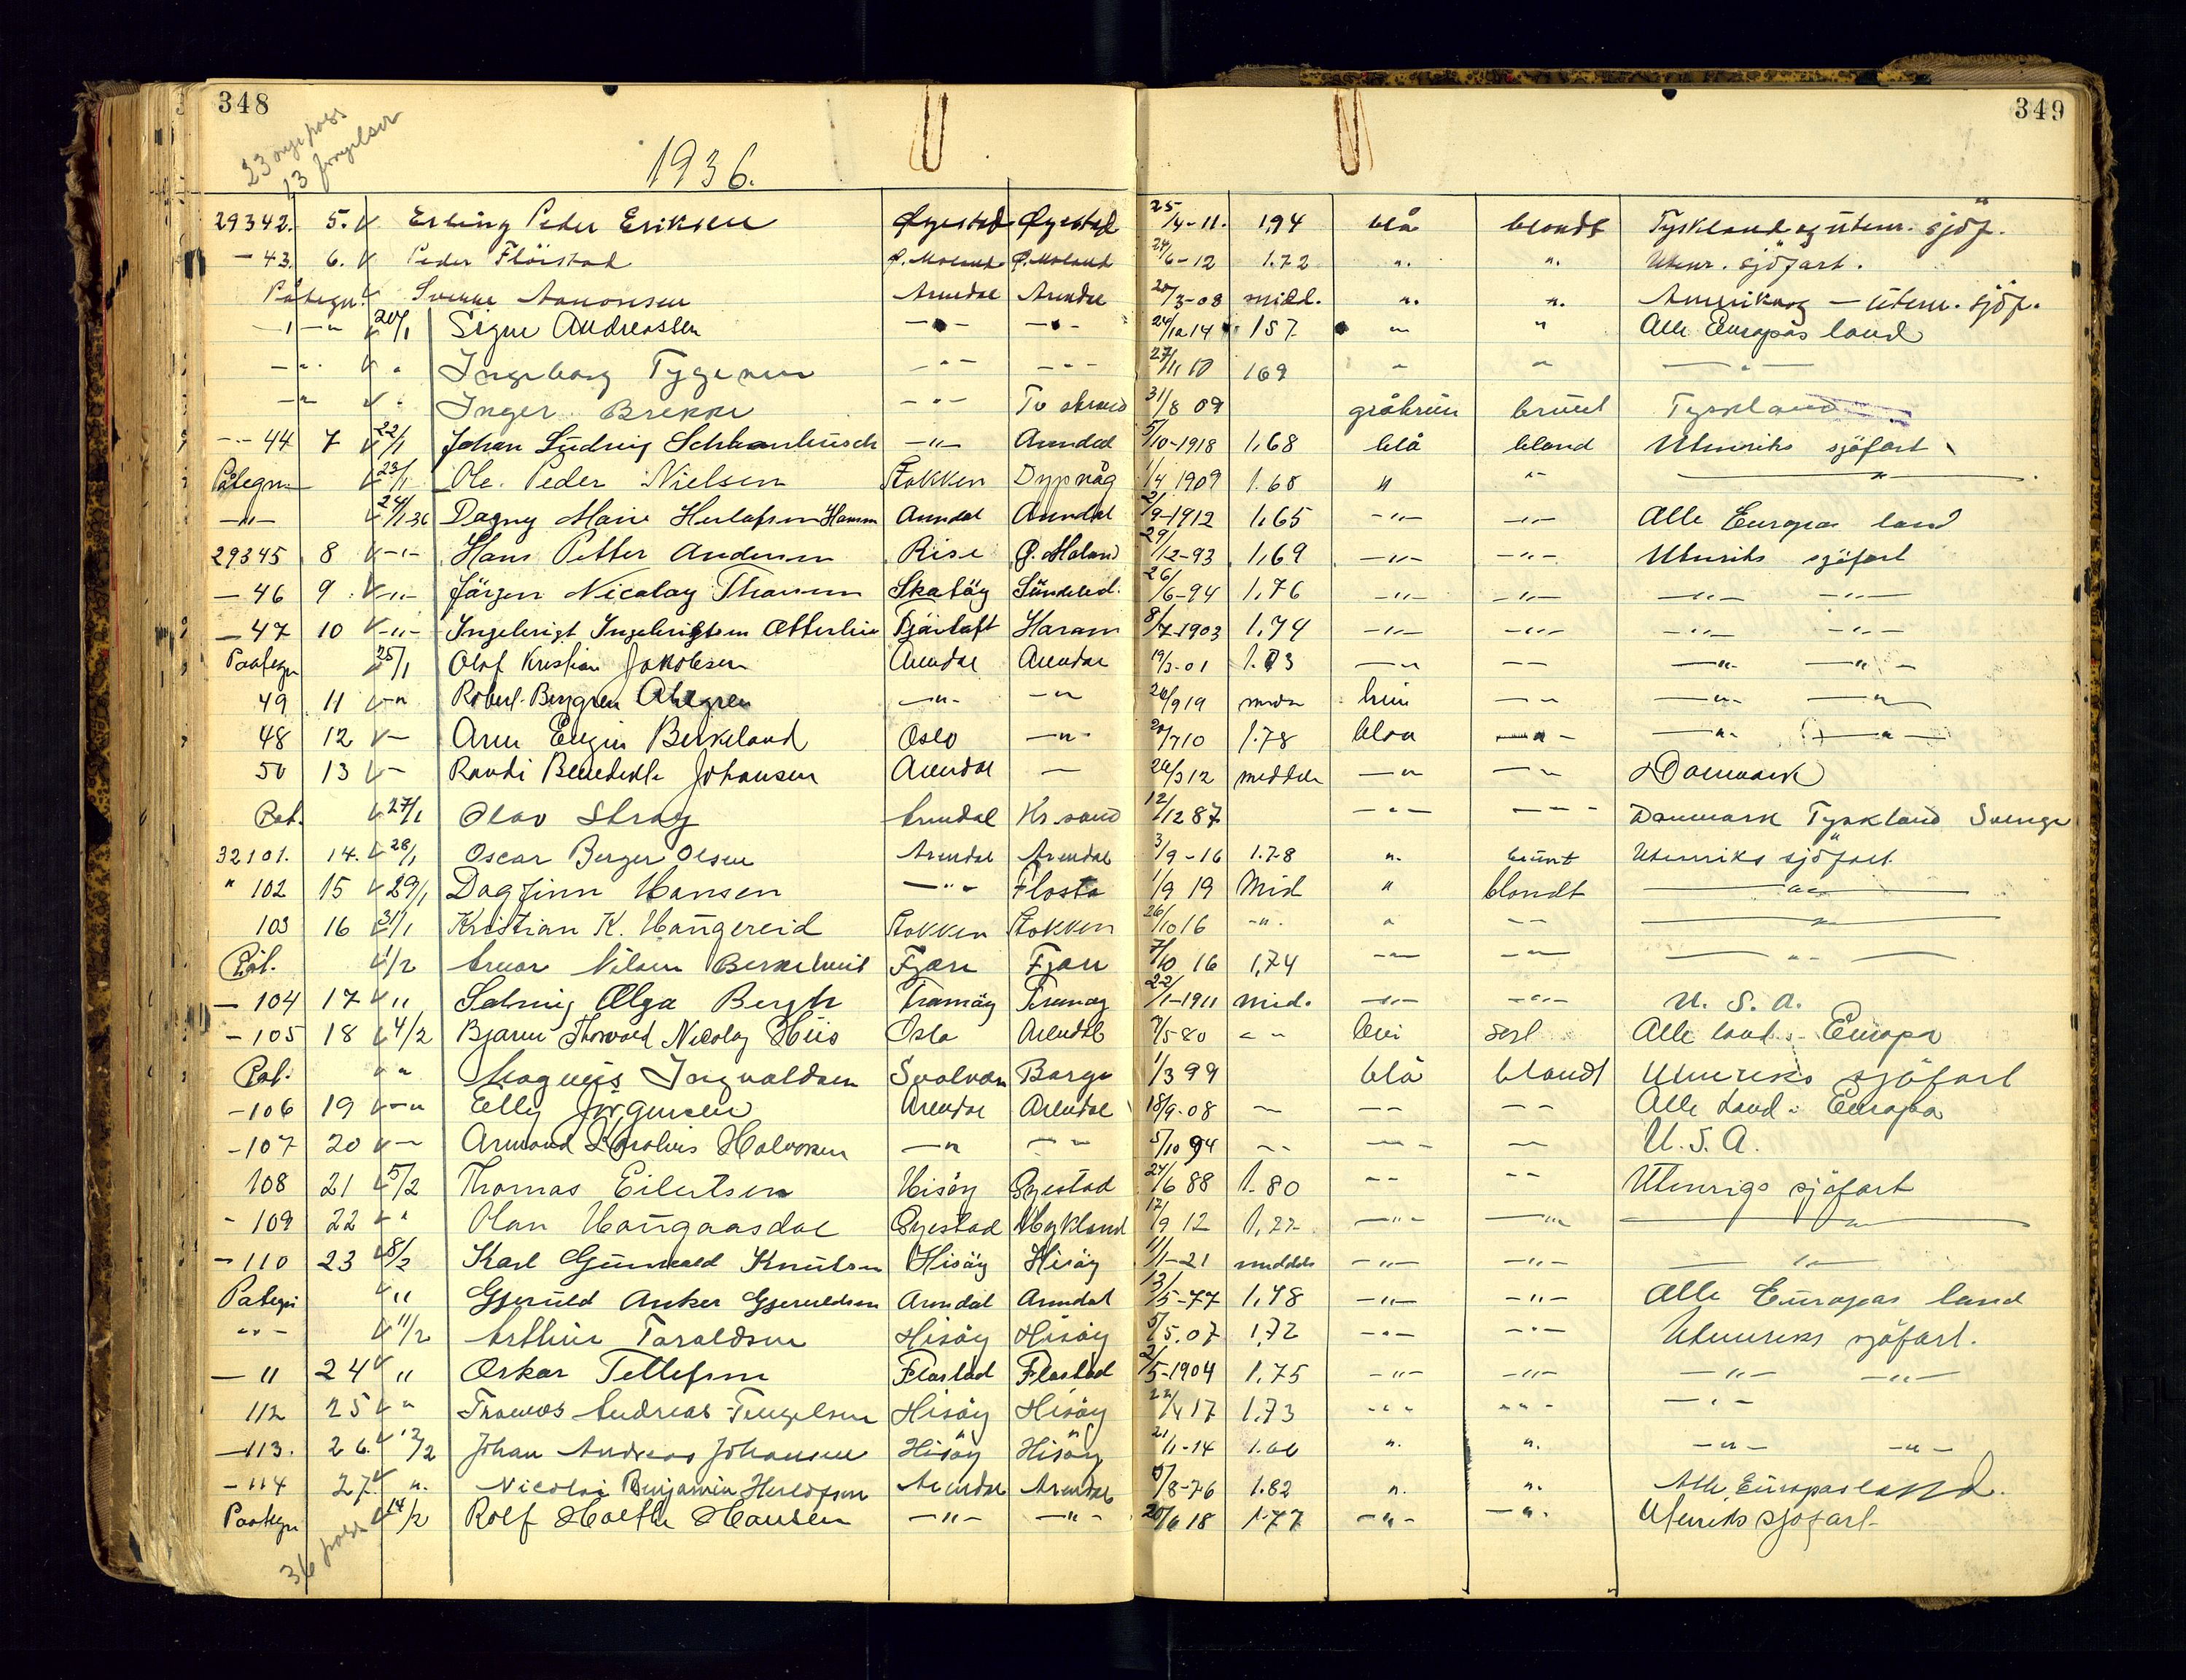 348
349
23 nye pass
13 fornyelser
1936.
29342. 5. Erling Peder Eriksen Øyestad Øyestad 25/4-11. 1,94 blå blondt Tyskland og utenr. sjöf.
-43. 6. Peder Flöistad Ø. Moland Ø. Moland 24/6-12 1.72 ". ". Utenr. sjöfart.
Påtegn. Sverre Aanonsen Arendal Arendal 20/3-08 midl. ". ". Amerika og - utenr. sjöf.
-"- 20/1 Signe Andreassen -"- -"- 24/12 14 157 " " Alle Europas land
-"- " Ingeborg -"- -"- 27/11 10 169 " " -"-
-"- " Inger Brekke -"- 31/8 09 gråbrun brunt Tyskland
-"- 44 7 22/1 Johan Ludvig -"- Arendal 5/10-1918 1,68 blå blond Utenriks sjöfart
Påtegn. 23/1 Ole Peder Nielsen Stokken Dypvåg 1/4 1909 1.68 " " -"-
-"- 24/1-36 Dagny Marie Herlofsen Hansen Arendal Arendal 2/9-1912 1,65 -"- -"- Alle Europas land
29345 8 -"- Hans Petter Andersen Rise Ø. Moland 29/12-93 1,69 -"- -"- Utenriks sjöfart
-46 9. -"- Jörgen Nicolay Skatöy Söndeled. 26/6-94 1,76 -"- -"- -"- -"-
-47 10 -"- Ingebrigt Ingebrigtsen Otterlei Haram 8/7-1903 1,74 -"- -"- -"- -"-
Paategn 25/1 Olaf Kristian Jakobsen Arendal Arendal 19/3-01 1.73 -"- -- -"- -"-
49 11 -"- Robert Berggren Ahlgren -"- -"- 24/9 19 brun -"- -"- -"-
48 12 - Arne Birkeland Oslo -"- 20/7 10 1.78 blaa -"- -"- -"-
50 13 - Randi Benedikte Johansen Arendal - 24/3 12 middels -"- -"- Danmark
Pat. 27/1 Olav Stray Arendal Kr.sand 12/12 87 -"- -"- Danmark Tyskland Sverige
32101. 14. 28/1 Oscar Berger Olsen Arendal Arendal 3/9-16 1.78 ". brunt Utenriks sjöfart.
" 102 15 29/1 Dagfinn Hansen -"- Flosta 1/9 19 Mid " blondt -"-
103 16 31/1 Kristian K. Haugereid Stokken Stokken 26/10 16 -"- " -- -"-
Påt. 1/2 Nilsen Fjære Fjære 7/10 16 1,74 -"- -"- -"-
-104 17 " Solveig Olga Bergh Tromöy Tromöy 22/1-1911 mid. -"- -"- U. S. A.
-105 18 4/2 Bjarne Thorvald Nicolay Oslo Arendal 9/5 80 -"- Alle land i Europa
Pat. " Magnus Ingvaldsen Svolvær Barge 1/3 99 blå blondt Utenriks sjöfart
-106 19 -"- Elly Jörgensen Arendal Arendal 18/9-08 - -- -- Alle Land i Europa
-107 20 - Armand Halvorsen -"- -"- 5/10 94 -- -- - U.S.A.
108 21 5/2 Thomas Eilertsen Hisöy Öyestad 24/6 88 1.80 -- -- Utenrigs sjöfart
- 109 22 " Olav Haugaasdal Öyestad Mykland 12/9 12 1,77 -"- -"- -"-
-110 23 8/2 Karl Gunvald Knutsen Hisöy Hisöy 11/1-21 middels -"- -"- -"-
Pategn " Gjeruld Anker Gjeruldsen Arendal Arendal 13/5-77 1,78 -"- -"- Alle Europas land
-"- 11/2 Arthur Taraldsen Hisöy Hisöy 5/5.07 1,72 -"- -"- Utenriks sjöfart.
- 11 24 " Oskar Tellefsen 2/5-1904 1,75 -"- -"- -"- -"-
112 25 " Thomas Andreas Hisöy Hisöy 22/4 17 1.73 -"- -"- -"-
-113. 26. 12/2 Johan Andreas Johansen Hisöy Hisöy 21/1-14 1.66 ". ". -"- -"-
-114 27. ". Nicolai Benjamin Herlofsen Arendal Arendal 5/8-76 1.82 ". ". Alle Europas land.
Paategn 14/2 Rolf Hansen -"- -"- 20/6 18 1.77 -"- -"- Utenriks sjöfart
36 pass